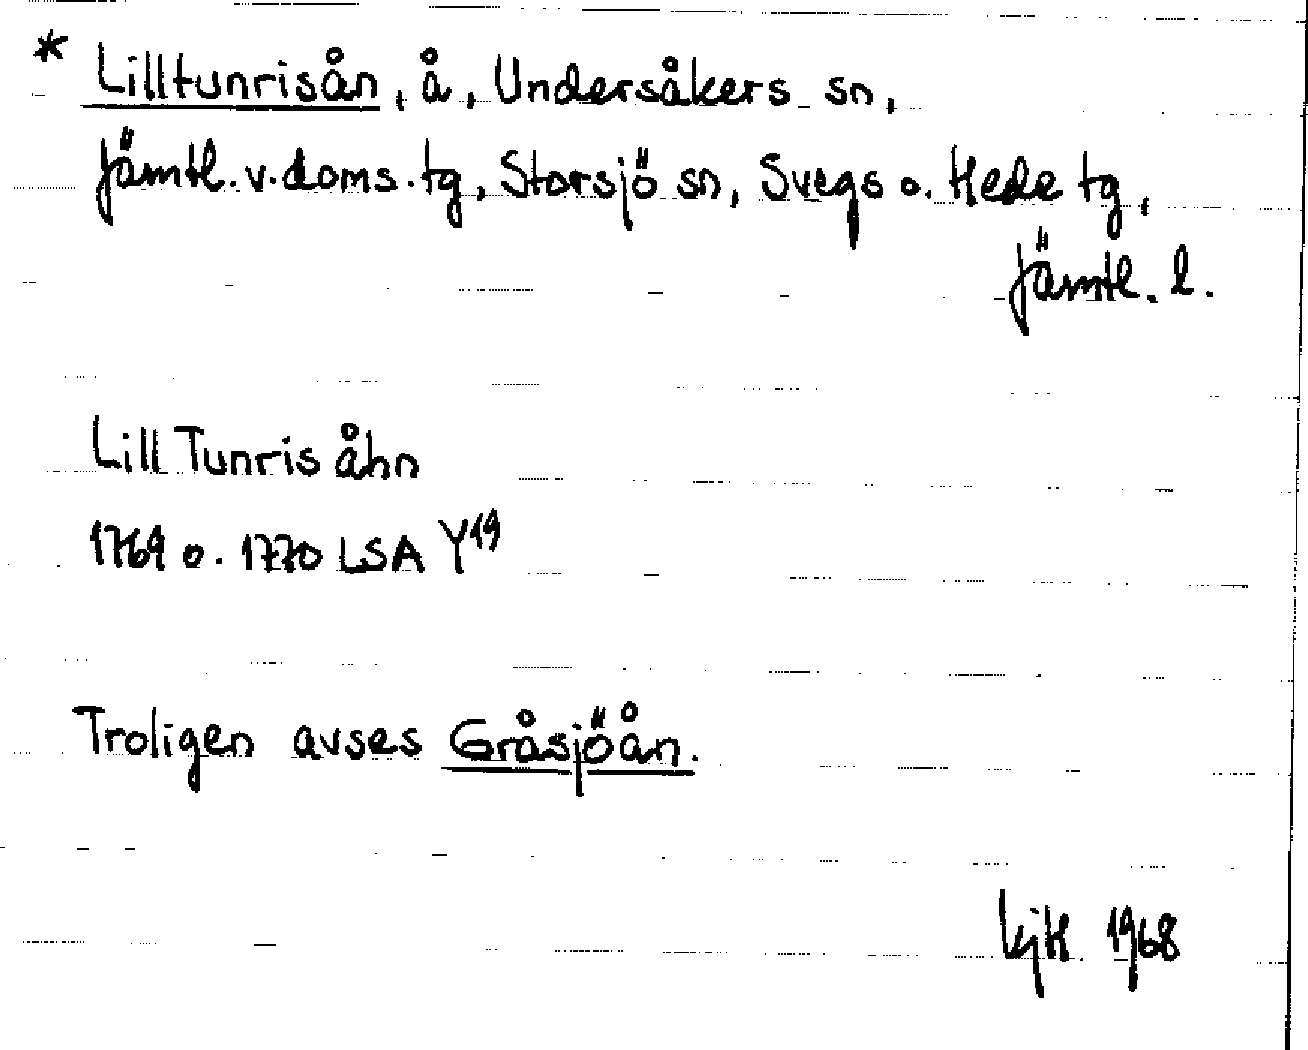 * Lilltunrisån, å, Undersåkers sn,
Jämtl. v. doms. tg, Storsjö sn, Svegs o. Hede tg,
Jämtl. l.
Lill Tunris åhn
1769 o. 1770 LSA Y19
Troligen avses Gråsjöån.
1968